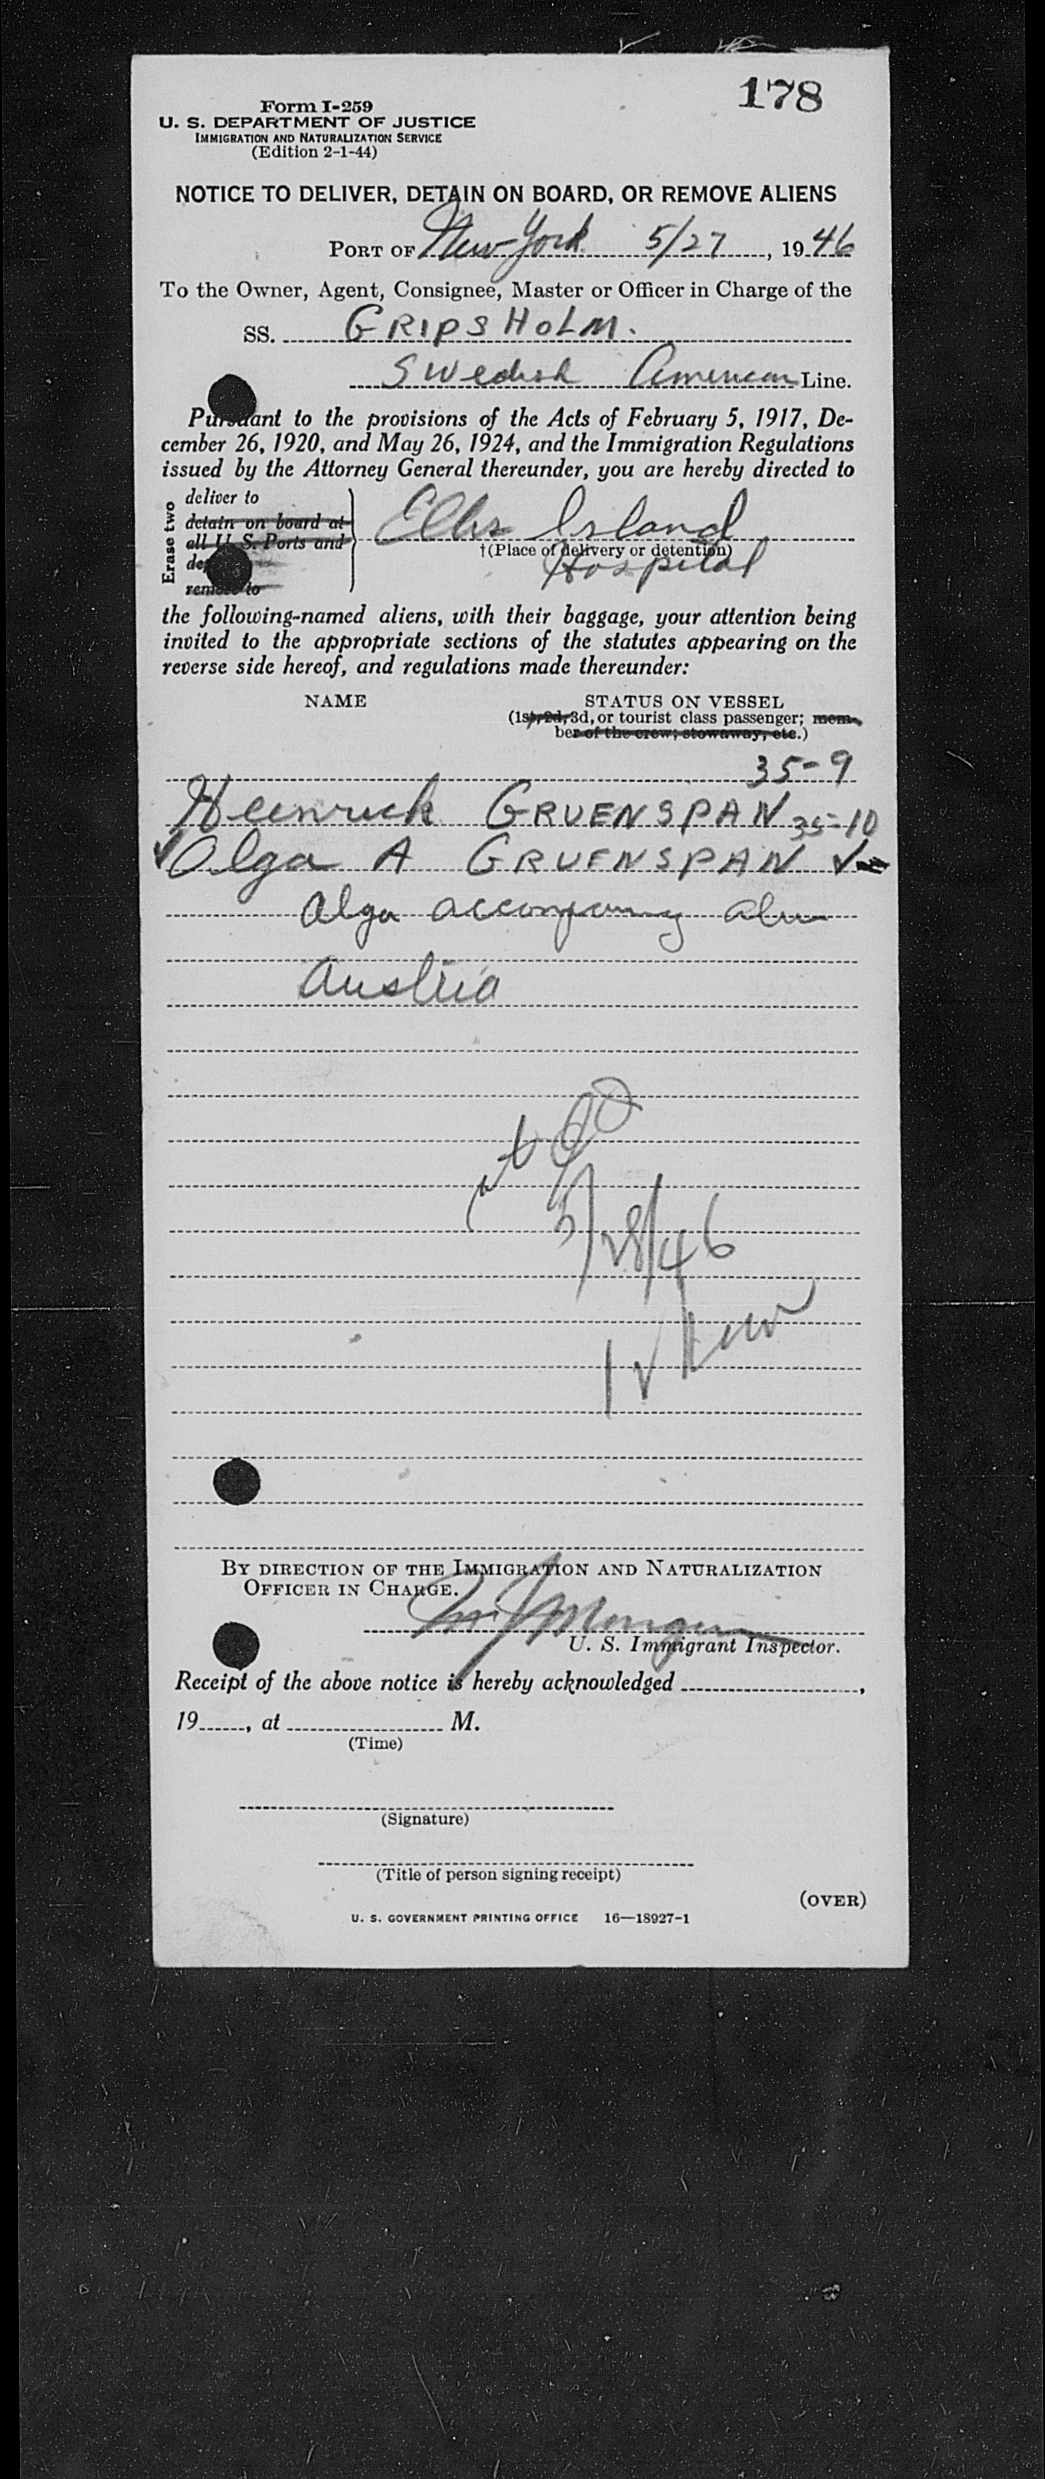 178
Form I-259
U. S. DEPARTMENT OF JUSTICE
IMMIGRATION AND NATURALIZATION SERVICE
(Edition 2-1-44)
NOTICE TO DELIVER, DETAIN ON BOARD, OR REMOVE ALIENS
PORT OF New York 5/27, 1946
To the Owner, Agent, Consignee, Master or Officer in Charge of the
SS. GRIPSHOLM.
Swedish American Line.
Pursuant to the provisions of the Acts of February 5, 1917, De-
cember 26, 1920, and May 26, 1924, and the Immigration Regulations
issued by the Attorney General thereunder, you are hereby directed to
Erase two
deliver to
detain on board at
all U. S. Ports and
remove to
Ellis Island
†(Place of delivery or detention)
Hospital
the following-named aliens, with their baggage, your attention being
invited to the appropriate sections of the statutes appearing on the
reverse side hereof, and regulations made thereunder:
NAME STATUS ON VESSEL
(1st, 2d, 3d, or tourist class passenger; mem-
ber of the crew; stowaway, etc.)
35-9
Heinrick GRUENSPAN 35-10
✓ Olga A GRUENSPAN ✓
Olga accompany alien
Austria
5/28/46
BY DIRECTION OF THE IMMIGRATION AND NATURALIZATION
OFFICER IN CHARGE.
U. S. Immigrant Inspector.
Receipt of the above notice is hereby acknowledged ,
19 , at M.
(Time)
(Signature)
(Title of person signing receipt)
(OVER)
U. S. GOVERNMENT PRINTING OFFICE 16—18927-1